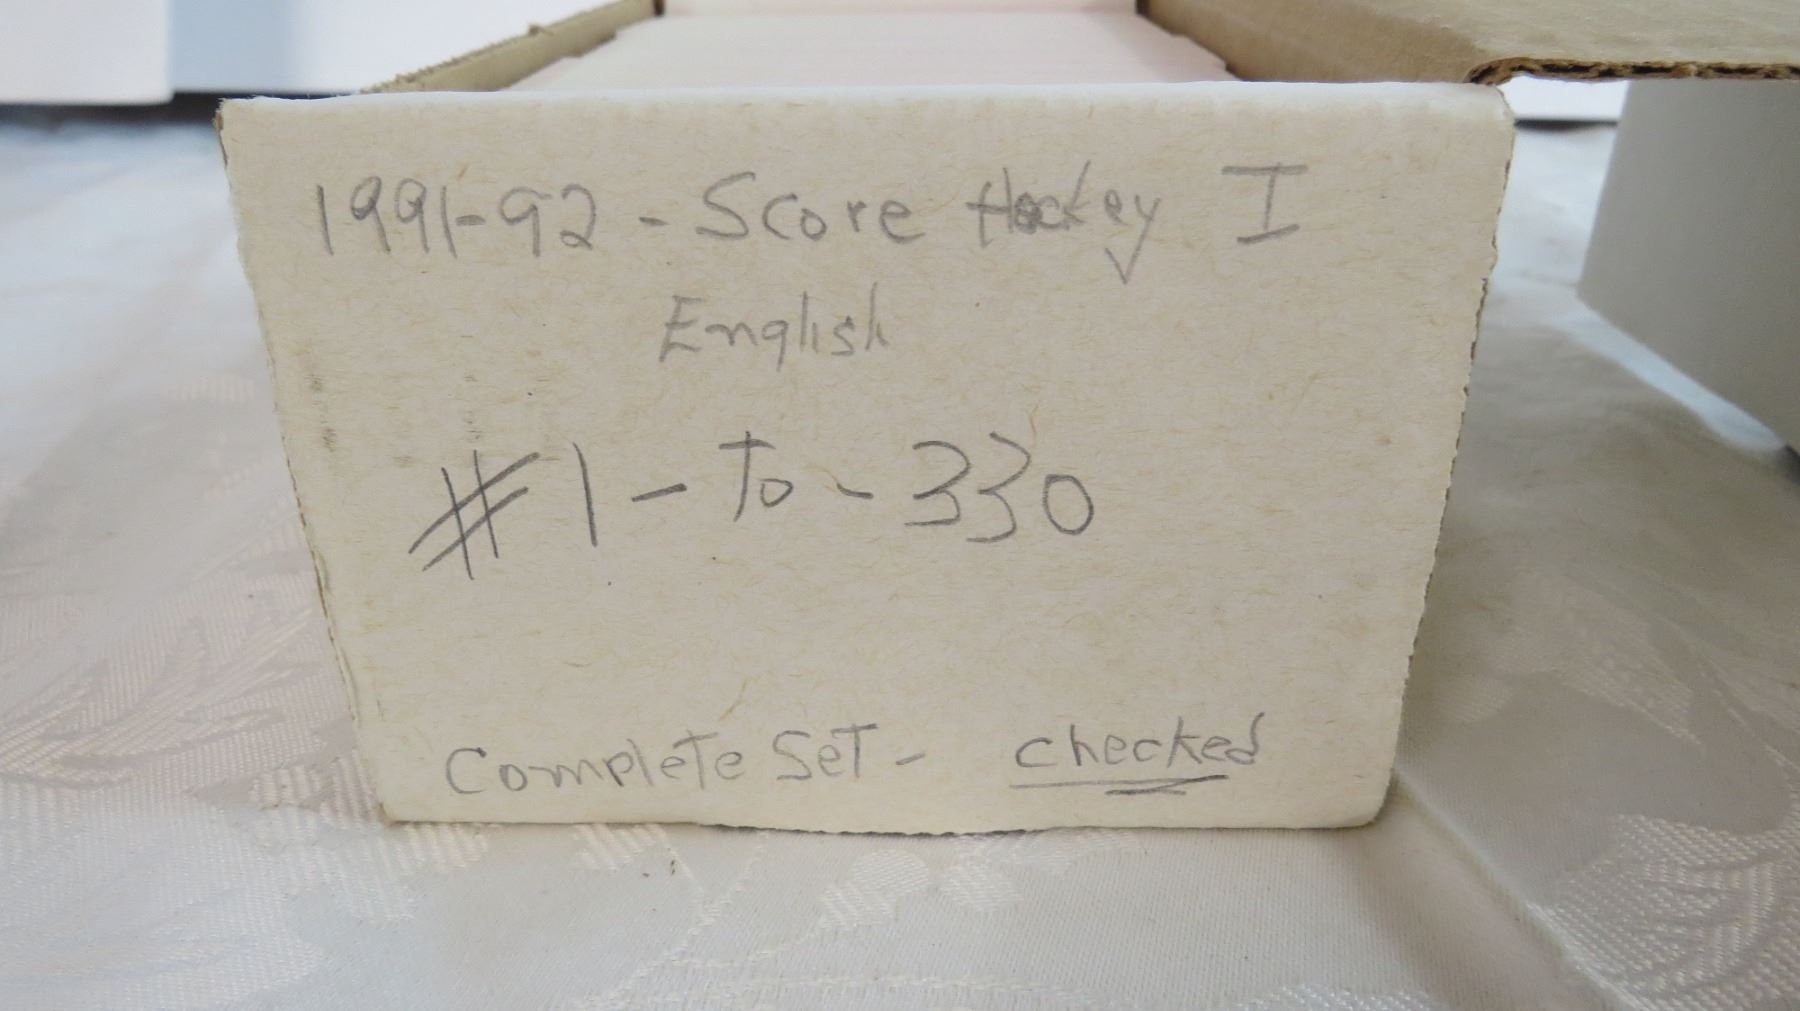 1991-92 - Score Hockey I
English
#1 - To - 330
Complete Set - checked